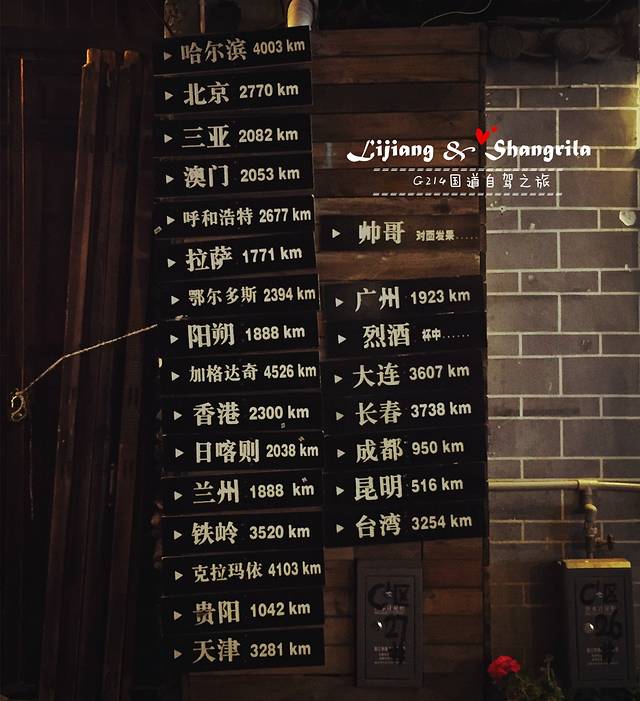 哈尔滨 4003 km
北京 2770 km
三亚 2082 km
澳门 2053 km
呼和浩特 2677 km
拉萨 1771 km
鄂尔多斯 2394 km
阳朔 1888 km
加格达奇 4526 km
香港 2300 km
日喀则 2038 km
兰州 1888 km
铁岭 3520 km
克拉玛依 4103 km
贵阳 1042 km
天津 3281 km
Lijiang & Shangrila
G214国道自驾之旅
帅哥 对面发呆......
广州 1923 km
烈酒 杯中......
大连 3607 km
长春 3738 km
成都 950 km
昆明 516 km
台湾 3254 km
C区
27
C区
26